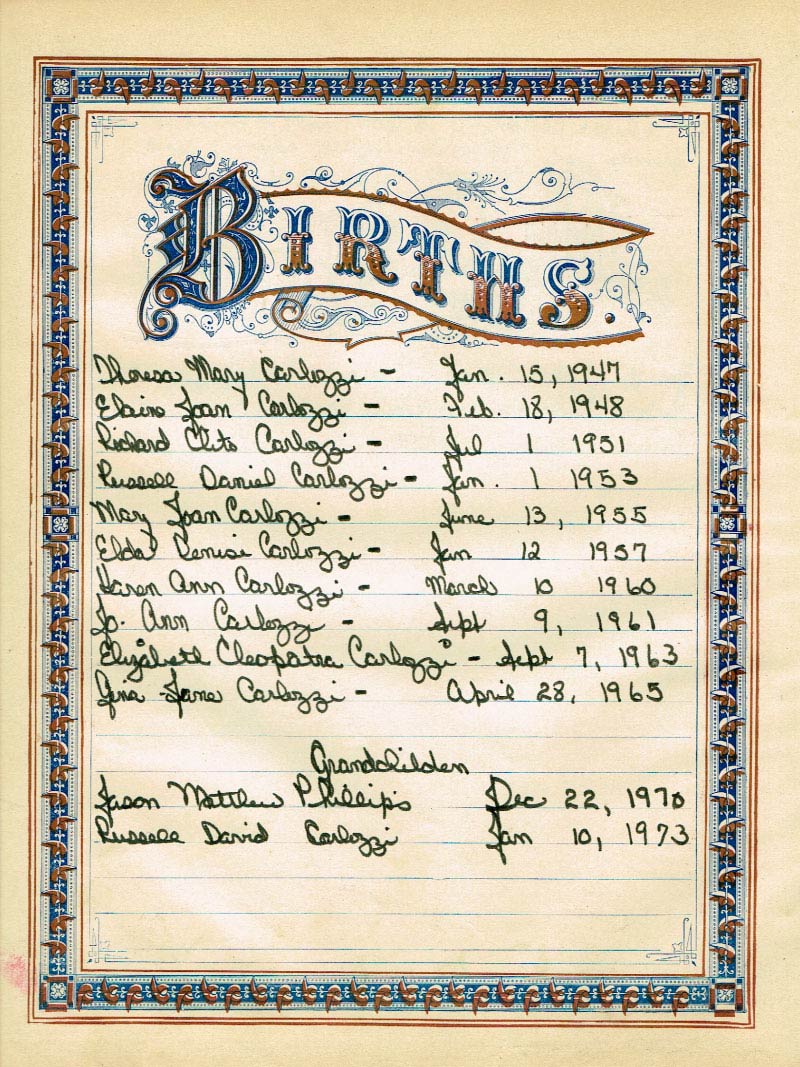 BIRTHS.
Theresa Mary Carlozzi - Jan. 15, 1947
Elaine Joan Carlozzi - Feb. 18, 1948
Richard Clito Carlozzi - Jul 1 1951
Russell Daniel Carlozzi - Jan. 1 1953
Mary Joan Carlozzi - June 13, 1955
Elda Denise Carlozzi - Jan 12 1957
Karen Ann Carlozzi - March 10 1960
Jo. Ann Carlozzi - Sept 9, 1961
Elizabeth Cleopatra Carlozzi - Sept 7, 1963
Gina Jane Carlozzi - April 28, 1965
Grandchildren
Jason Matthew Phillips Dec 22, 1970
Russell David Carlozzi Jan 10, 1973